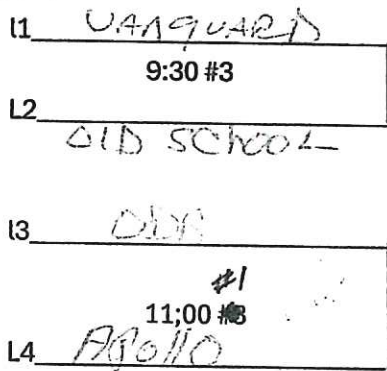 l1 VANGUARD
9:30 #3
L2
OLD SCHOOL
l3
#1
11;00
L4 Apollo